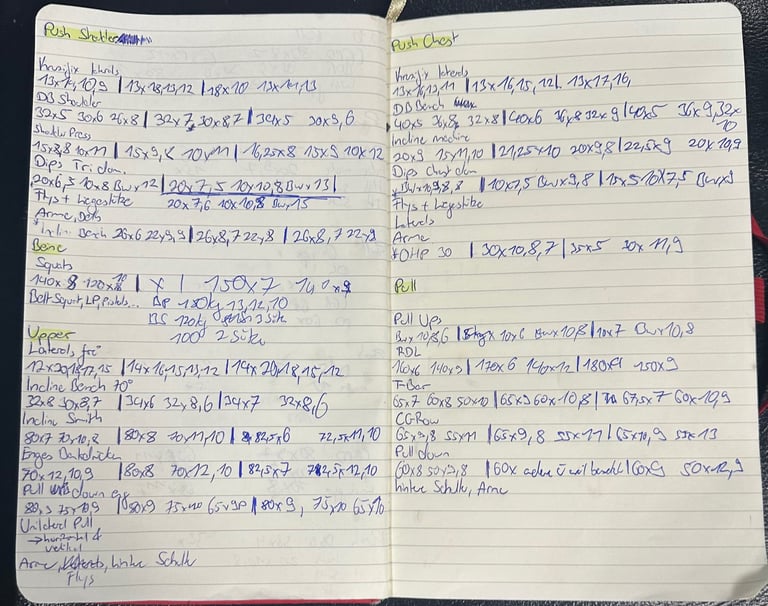 Push Shoulder
Kruzifix laterals
13x14,10,9 | 13x18,13,12 | 18x10 13x14,13
DB Shoulder
32x5 30x6 26x8 | 32x7 30x8,7 | 34x5 30x9,6
Shoulder Press
15x8,8 10x11 | 15x9,8 10x11 | 16,25x8 15x9 10x12
Dips Tri dom.
20x6,5 10x8 Bwx12 | 20x7,5 10x10,8 Bwx13 |
20x7,6 10x10,8 Bwx15
Flys + Liegestütze
Arme,
Incl. Bench 26x6 22x9,9 | 26x8,7 22x8 | 26x8,7 22x9
Beine
Squats
140x8 120x10 | X | 150x7 140x9
Belt Squat, LP, Pistols... LP 180kg 13,12,10
BS 120kg 3 Sätze
100 2 Sätze
Upper
Laterals frei
12x20,18,12,15 | 14x16,15,13,12 | 14x20,18,15,12
Incline Bench 70°
32x8 30x8,7 | 34x6 32x8,6 | 34x7 32x8,6
Incline Smith
80x7 70x10,8 | 80x8 70x11,10 | 82,5x6 72,5x11,10
Enges Bankdrücken
70x12,10,9 | 80x8 70x12,10 | 82,5x7 72,5x12,10
Pull down
80x9 75x10,9 | 80x9 75x10 65x9 | 80x9, 75x10 65x10
Unilateral Pull
→ horizontal &
vertikal
Arme, hintere Schulter
Flys
Push Chest
Kruzifix laterals
13x16,12,11 | 13x16,15,12 | 13x17,16,
DB Bench
40x5 36x8 32x8 | 40x6 36x8 32x9 | 40x5 36x9,32x
10
Incline machine
20x9 15x11,10 | 21,25x10 20x9,8 | 22,5x9 20x10,9
Dips Chest dom
Bwx10,9,8,8 | 10x7,5 Bwx9,8 | 15x5 10x7,5 Bwx9
Flys + Liegestütze
Laterals
Arme
OHP 30 | 30x10,8,7 | 35x5 30x11,9
Pull
Pull Ups
Bwx10,8,6 | 10x6 Bwx10,8 | 10x7 Bwx10,8
RDL
160x6 140x9 | 170x6 140x12 | 180x4 150x9
T-Bar
65x7 60x8 50x10 | 65x9 60x10,8 | 67,5x7 60x10,9
CG-Row
65x9,8 55x11 | 65x9,8 55x11 | 65x10,9 55x13
Pull down
60x8 50x9,8 | 60x | 60x9 50x12,9
hintere Schulter, Arme